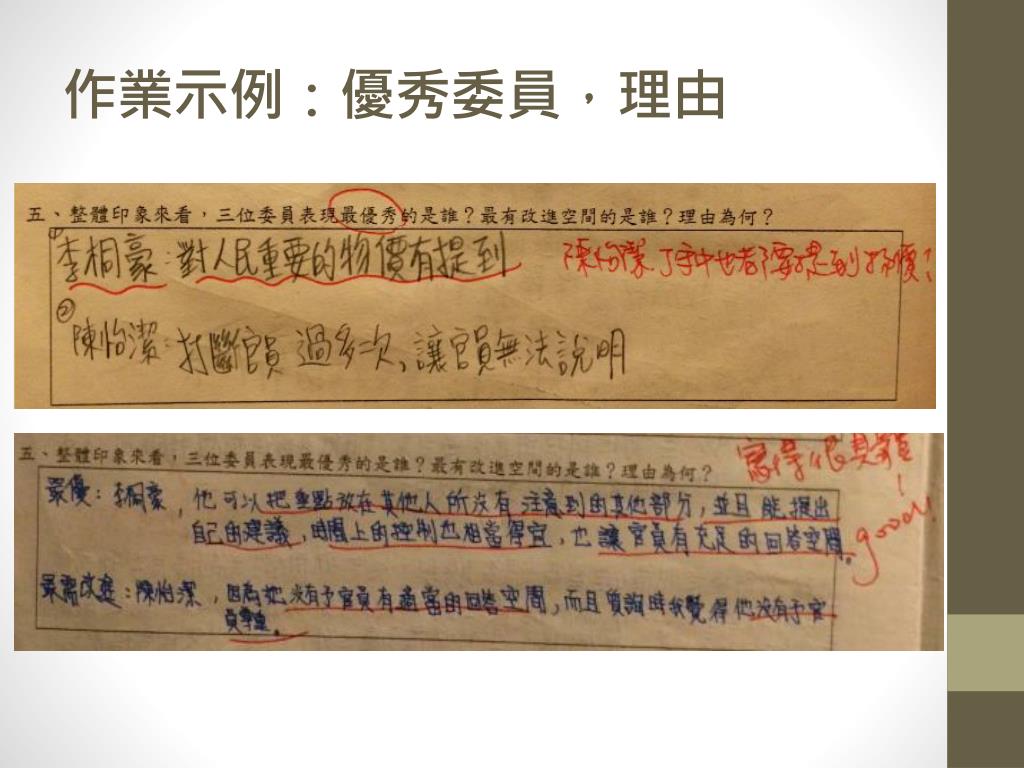 作業示例：優秀委員，理由
五、整體印象來看，三位委員表現最優秀的是誰？最有改進空間的是誰？理由為何？
① 李桐豪：對人民重要的物價有提到
陳怡潔、丁守中也都有提到物價！
② 陳怡潔：打斷官員過多次，讓官員無法說明
五、整體印象來看，三位委員表現最優秀的是誰？最有改進空間的是誰？理由為何？
寫得很具體！
good!
最優：李桐豪，他可以把重點放在其他人所沒有注意到的其他部分，並且能提出
自己的建議，時間上的控制也相當得宜，也讓官員有充足的回答空間。
最需改進：陳怡潔，因為她沒有予官員有適當的回答空間，而且質詢時我覺得他沒有予官
員尊重。